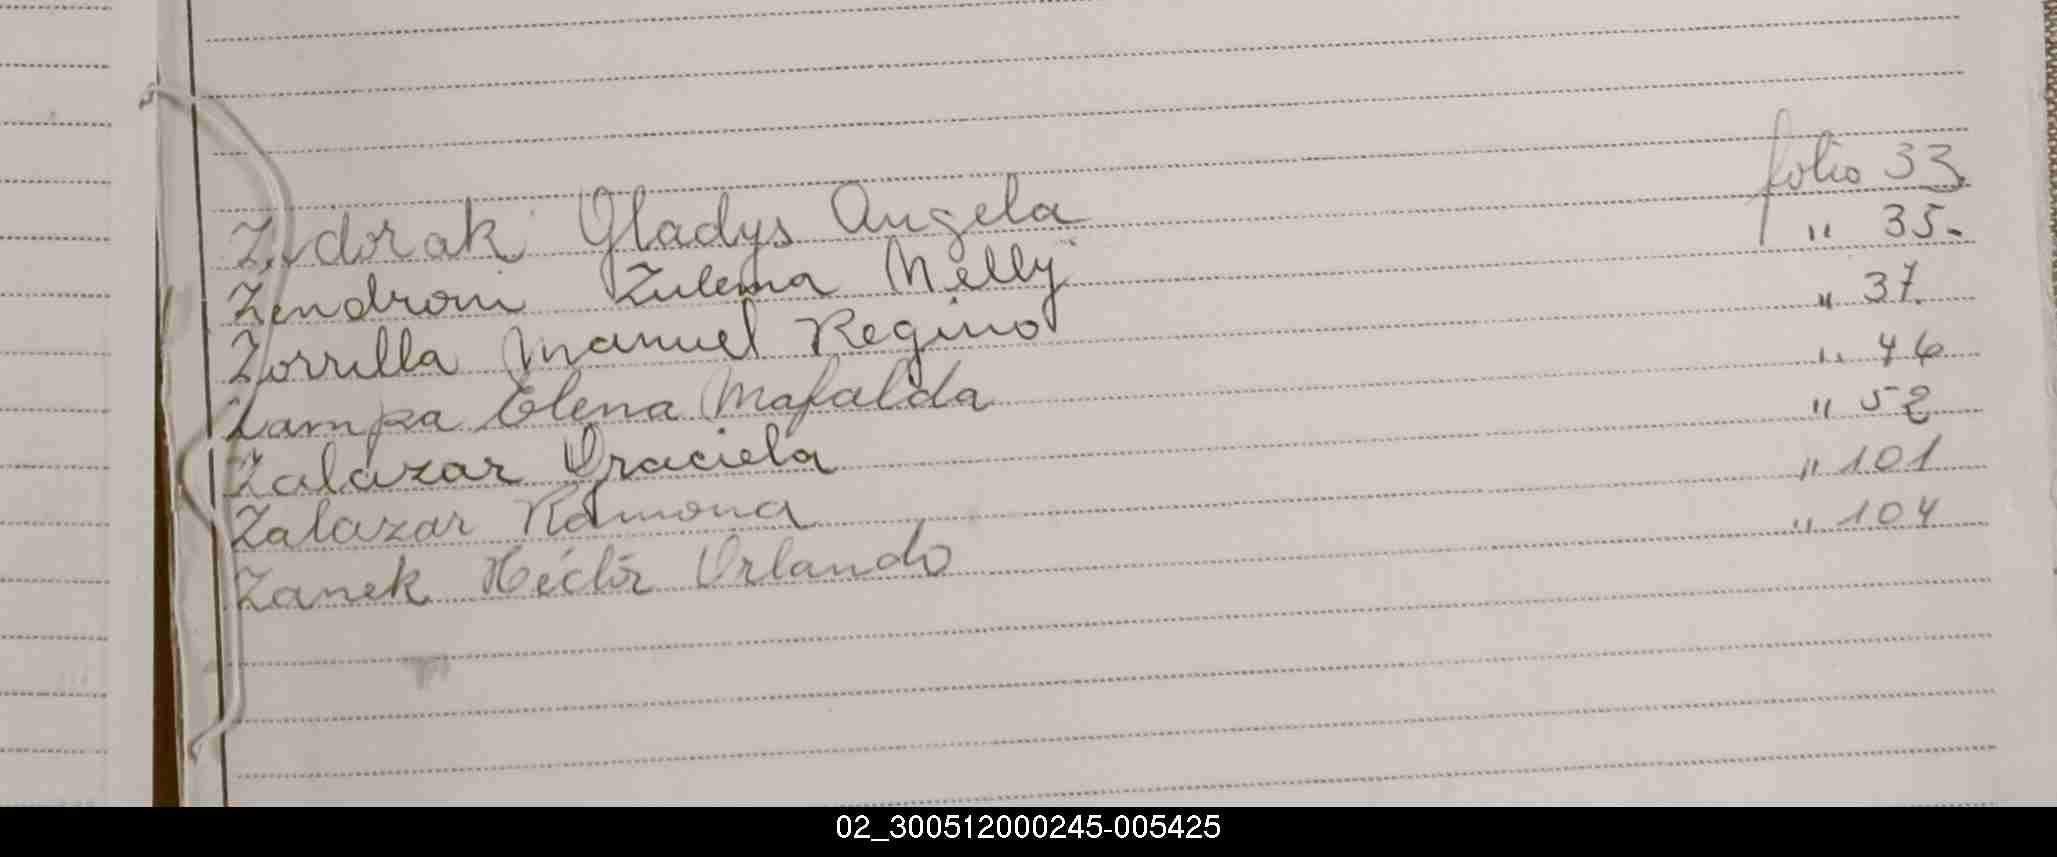 Zidorak Gladys Angela folio 33
Zendroni Zulema Nelly " 35.
Zorrilla Manuel Regino " 37.
Zampa Elena Mafalda " 46
Zalazar Graciela " 52
Zalazar Ramona " 101
Zanek Héctor Orlando " 104
02_300512000245-005425